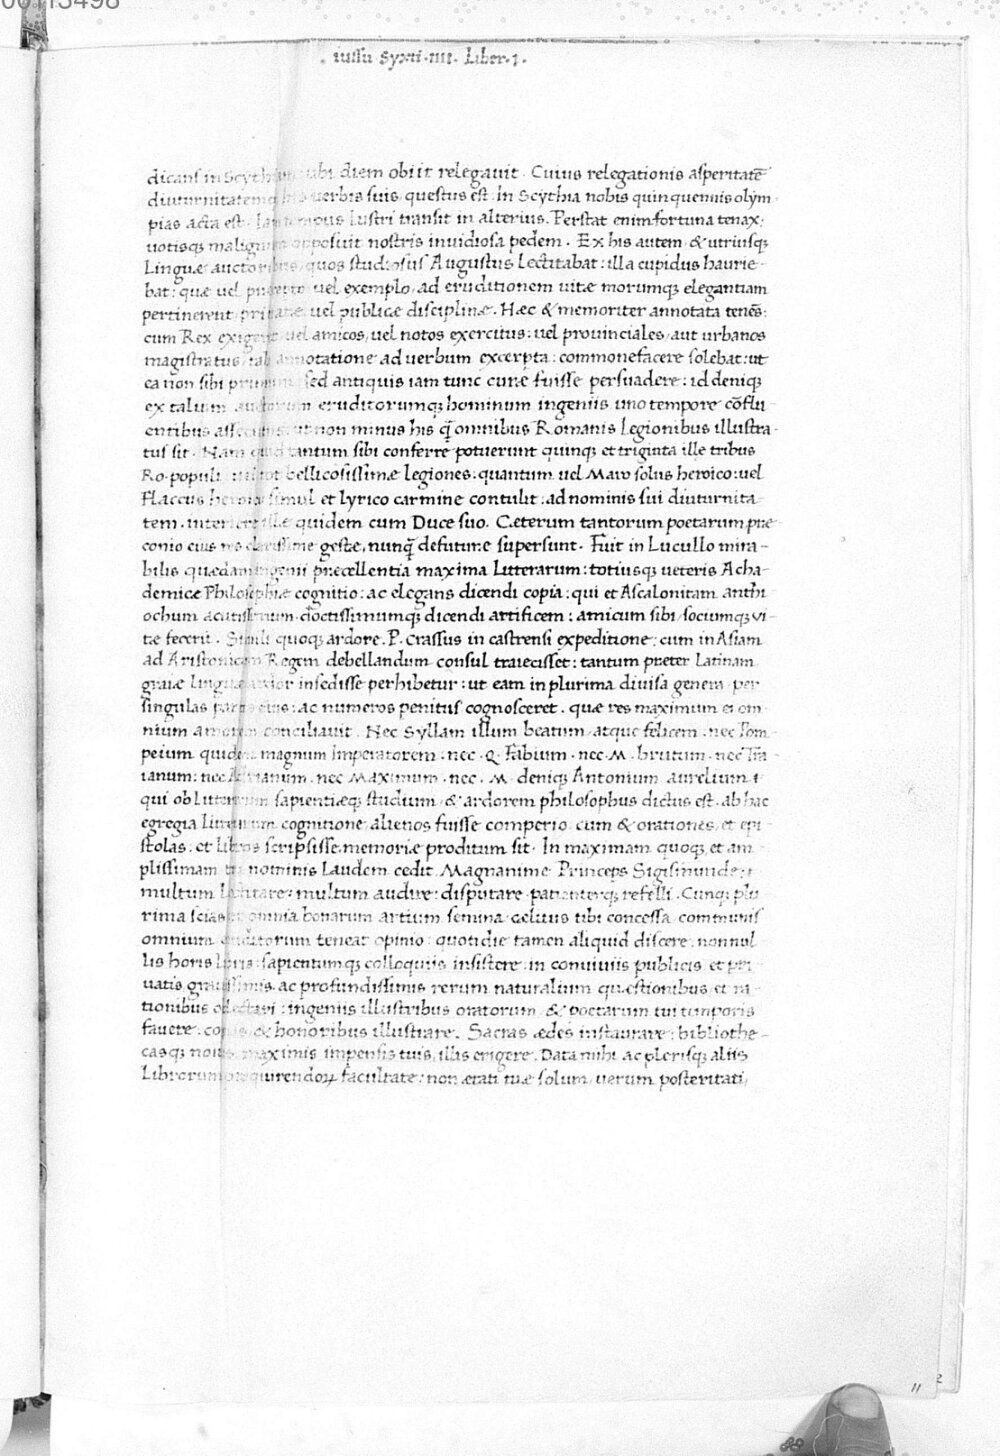 00113498
iussu Syxti · IIII · Liber · I ·
dicans in Scythiam ubi diem obiit relegavit . Cuius relegationis asperitatē
diuturnitatemq his verbis suis questus est . In Scythia nobis quinquennis olym-
pias acta est . Iam tempus lustri transit in alterius . Perstat enim fortuna tenax:
votisq malignum opposuit nostris invidiosa pedem . Ex his autem & utriusq
Linguæ auctoribus, quos studiosus Augustus Lectitabat : illa cupidus haurie-
bat : quæ vel præcepto vel exemplo, ad eruditionem vitæ morumq elegantiam
pertinerent, privatæ vel publicæ disciplinæ . Hæc & memoriter annotata tenēs:
cum Rex exigeret vel amicos, vel notos exercitus : vel provinciales, aut urbanos
magistratus, ab annotatione ad verbum excerpta : commonefacere solebat : ut
ea non sibi primum sed antiquis iam tunc curæ fuisse persuadere : id deniq
ex talium auctorum eruditorumq hominum ingeniis uno tempore cōflu-
entibus assecutus : ut non minus his q̄ omnibus Romanis Legionibus illustra-
tus sit . Nam quid tantum sibi conferre potuerunt quinq et triginta ille tribus
Ro · populi vel tot bellicosissimæ legiones : quantum vel Maro solus heroico : vel
Flaccus heroico simul et lyrico carmine contulit : ad nominis sui diuturnita-
tem . interiere illæ quidem cum Duce suo . Cæterum tantorum poetarum præ-
conio eius res clarissime gestæ, nunq̄ defuturæ supersunt . Fuit in Lucullo mira-
bilis quædam ingenii præcellentia maxima Litterarum : totiusq veteris Acha-
demicæ Philosophiæ cognitio : ac elegans dicendi copia : qui et Ascalonitam anthi-
ochum acutissimum doctissimumq dicendi artificem : amicum sibi, sociumq vi-
tæ fecerit . Simili quoq ardore . P . Crassus in castrensi expeditione : cum in Asiam
ad Aristonicum Regem debellandum consul traiecisset : tantum præter Latinam
graiæ linguæ insedisse perhibetur : ut eam in plurima divisa genera per
singulas partes eius : ac numeros penitus cognosceret . quæ res maximum ei om-
nium amorem conciliavit . Nec Syllam illum beatum atque felicem . nec Pom-
peium quidem magnum Imperatorem . nec . Q . Fabium . nec . M . brutum . nec Tra-
ianum : nec Adrianum . nec Maximum . nec . M . deniq Antonium aurelium :
qui ob Litterarum sapientiæq studium & ardorem philosophus dictus est . ab hac
egregia litterarum cognitione, alienos fuisse comperio cum & orationes, et epi-
stolas : et libros scripsisse, memoriæ proditum sit . In maximam quoq et am-
plissimam tui nominis Laudem cedit Magnanime Princeps Sigismunde :
multum lectitare : multum audire : disputare patienterq refelli . Cunq plu-
rima scias & omnia bonarum artium semina celitus tibi concessa communis
omnium eruditorum teneat opinio : quotidie tamen aliquid discere . nonnul-
lis horis libris : sapientumq colloquiis insistere : in conviviis publicis et pri-
vatis gravissimis, ac profundissimis rerum naturalium quæstionibus et ra-
tionibus oblectari : ingeniis illustribus oratorum & poetarum tui temporis
favere : copiis & honoribus illustrare . Sacras ædes instaurare : bibliothe-
casq novas maximis impensis tuis, illis erigere . Data mihi ac plerisq aliis
Librorum perquirendorum facultate : non ætati tuæ solum, verum posteritati,
11
2